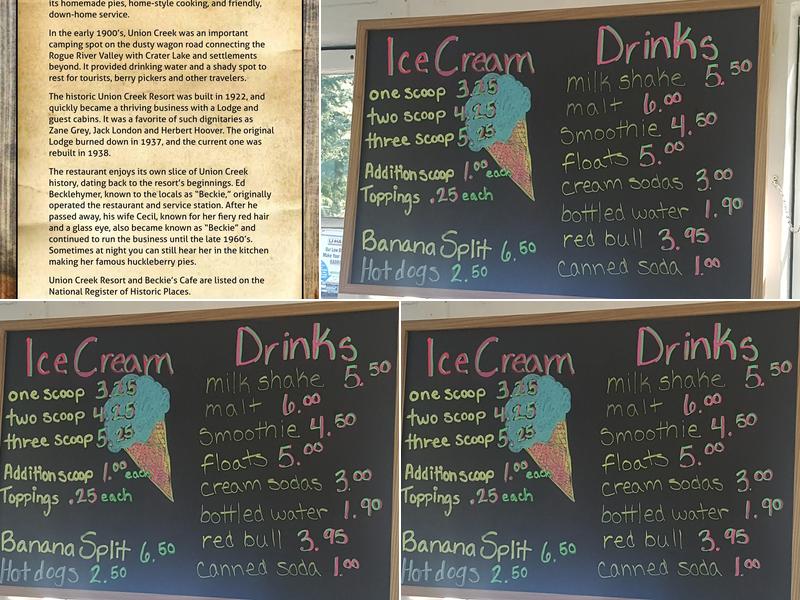 its homemade pies, home-style cooking, and friendly,
down-home service.
In the early 1900's, Union Creek was an important
camping spot on the dusty wagon road connecting the
Rogue River Valley with Crater Lake and settlements
beyond. It provided drinking water and a shady spot to
rest for tourists, berry pickers and other travelers.
The historic Union Creek Resort was built in 1922, and
quickly became a thriving business with a Lodge and
guest cabins. It was a favorite of such dignitaries as
Zane Grey, Jack London and Herbert Hoover. The original
Lodge burned down in 1937, and the current one was
rebuilt in 1938.
The restaurant enjoys its own slice of Union Creek
history, dating back to the resort's beginnings. Ed
Becklehymer, known to the locals as "Beckie," originally
operated the restaurant and service station. After he
passed away, his wife Cecil, known for her fiery red hair
and a glass eye, also became known as "Beckie" and
continued to run the business until the late 1960's.
Sometimes at night you can still hear her in the kitchen
making her famous huckleberry pies.
Union Creek Resort and Beckie's Cafe are listed on the
National Register of Historic Places.
Ice Cream
one scoop 3.25
two scoop 4.25
three scoop 5.25
Addition scoop 1.00 each
Toppings .25 each
Banana Split 6.50
Hot dogs 2.50
Drinks
milk shake 5.50
malt 6.00
smoothie 4.50
floats 5.00
cream sodas 3.00
bottled water 1.90
red bull 3.95
canned soda 1.00
Ice Cream
one scoop 3.25
two scoop 4.25
three scoop 5.25
Addition scoop 1.00 each
Toppings .25 each
Banana Split 6.50
Hot dogs 2.50
Drinks
milk shake 5.50
malt 6.00
smoothie 4.50
floats 5.00
cream sodas 3.00
bottled water 1.90
red bull 3.95
canned soda 1.00
Ice Cream
one scoop 3.25
two scoop 4.25
three scoop 5.25
Addition scoop 1.00 each
Toppings .25 each
Banana Split 6.50
Hot dogs 2.50
Drinks
milk shake 5.50
malt 6.00
smoothie 4.50
floats 5.00
cream sodas 3.00
bottled water 1.90
red bull 3.95
canned soda 1.00